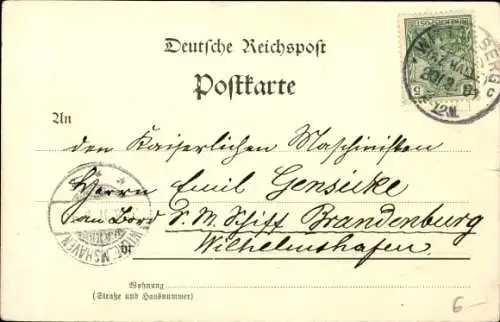 Deutsche Reichspost
Postkarte
An
den Kaiserlichen Maschinisten
Herrn Emil Gensicke
an Bord S. M. Schiff Brandenburg
Wilhelmshafen.
WILHELMSHAVEN
BERG
5
Wohnung
(Straße und Hausnummer)
6-